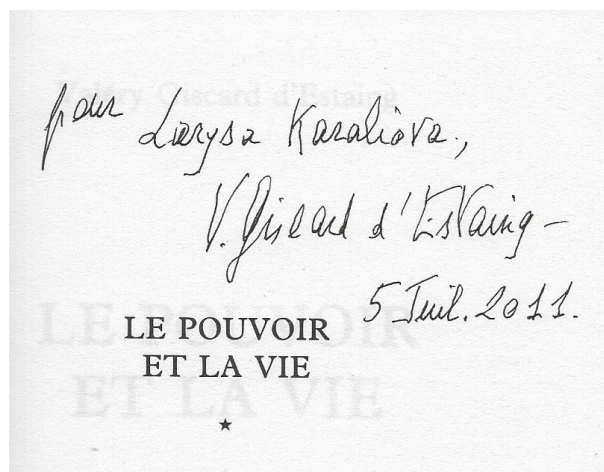 Valéry Giscard d'Estaing
pour Larysa Kazaliova.,
V. Giscard d'Estaing –
5 Juil. 2011.
LE POUVOIR
ET LA VIE
LE POUVOIR
ET LA VIE
★